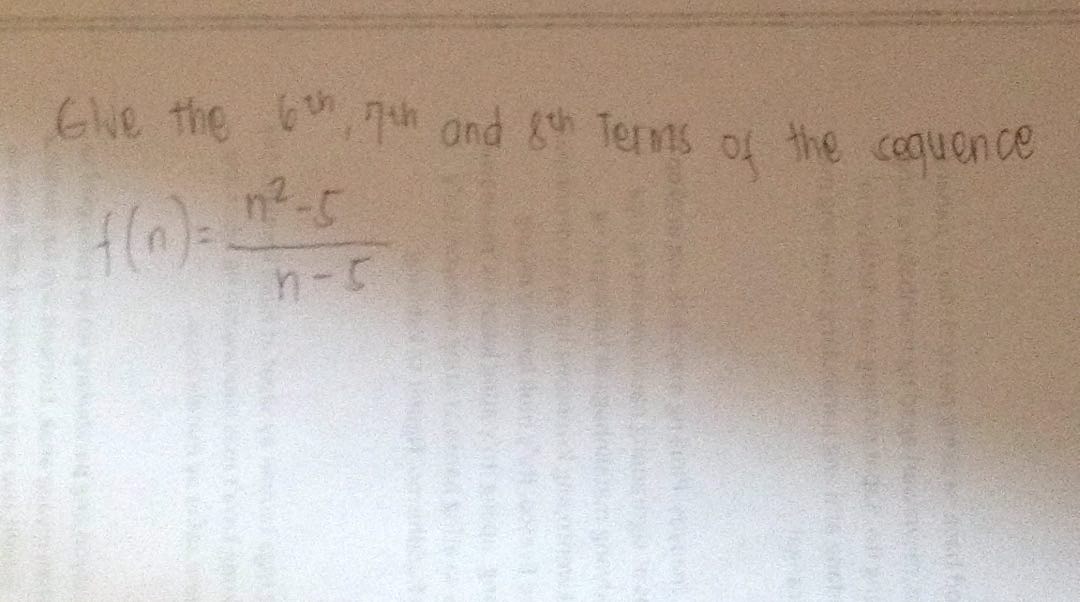 Give the 6th, 7th and 8th Terms of the sequence
f(n) = n²-5 / n-5